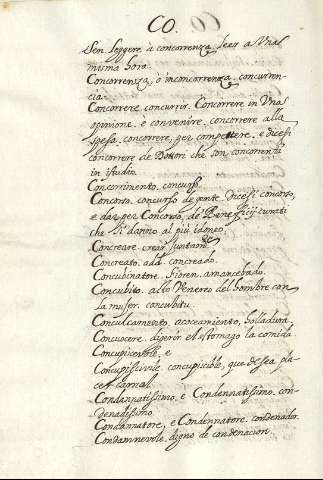 CO.
Sen Leggere à concorrenza, leer a Una
misma hora.
Concorrenza, o inconcorrenza. concurren-
cia.
Concorrere. concurrir. Concorrere in Una
opinione. è convenire. concorrere alla
spesa. concorrere, per competere. e dicesi
concorrere de Dottori che son concorrenti
in studio.
Concorrimento, concurso.
Concorso. concurso de gente. Dicesi concorso,
e dar per Concorso, de Beneficij curati
che si danno al più idoneo.
Concreare. crear juntamte
Concreato. add. concreado.
Concubinatore. Fioren. amancebado.
Concubito. atto Venereo del hombre con
la muger. concubitu.
Conculcamento, acoceamiento, holladura.
Concuocere. digerir el estomago la comida
Concupiscevole, e
Concupiscivile. concupicible, que desea pla-
cer carnal.
Condannatissimo, e Condennatissimo. con-
denadissimo.
Condannatore, e Condennatore. condenador.
Condannevole. digno de condenacion.